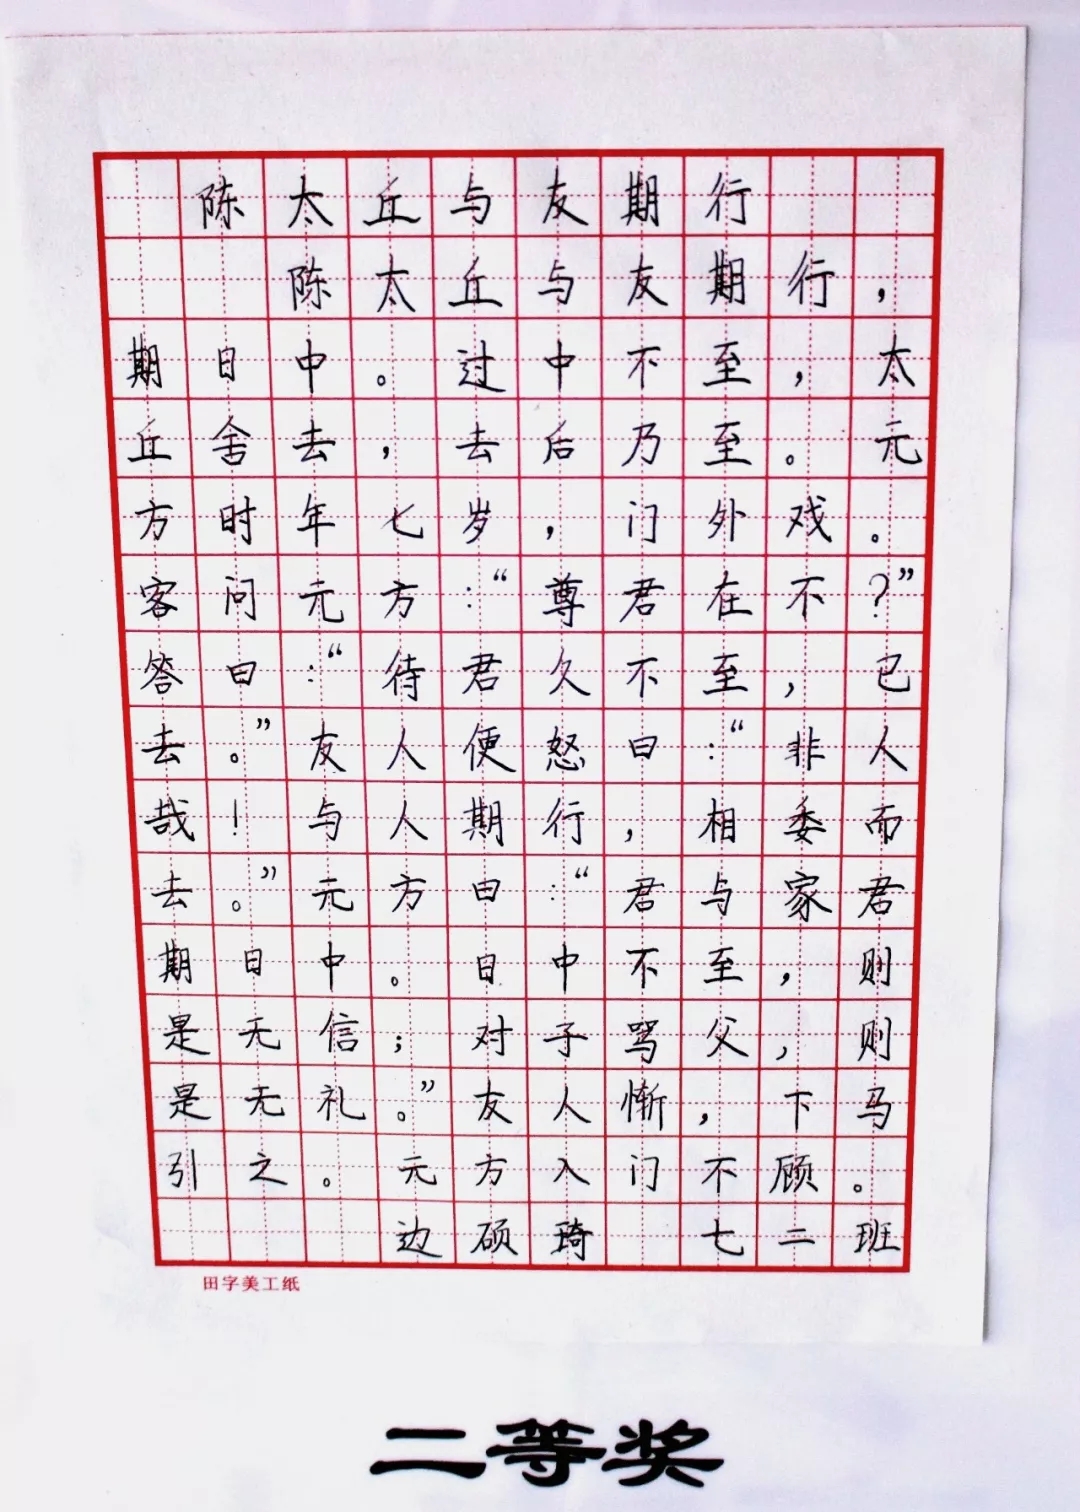 陈太丘与友期行
陈太丘与友期行，
期日中。过中不至，太
丘舍去，去后乃至。元
方时年七岁，门外戏。
客问元方：“尊君在不？”
答曰：“待君久不至，已
去。”友人便怒曰：“非人
哉！与人期行，相委而
去。”元方曰：“君与家君
期日中。日中不至，则
是无信；对子骂父，则
是无礼。”友人惭，下马
引之。元方入门不顾。
边硕琦 七二班
田字美工纸
二等奖